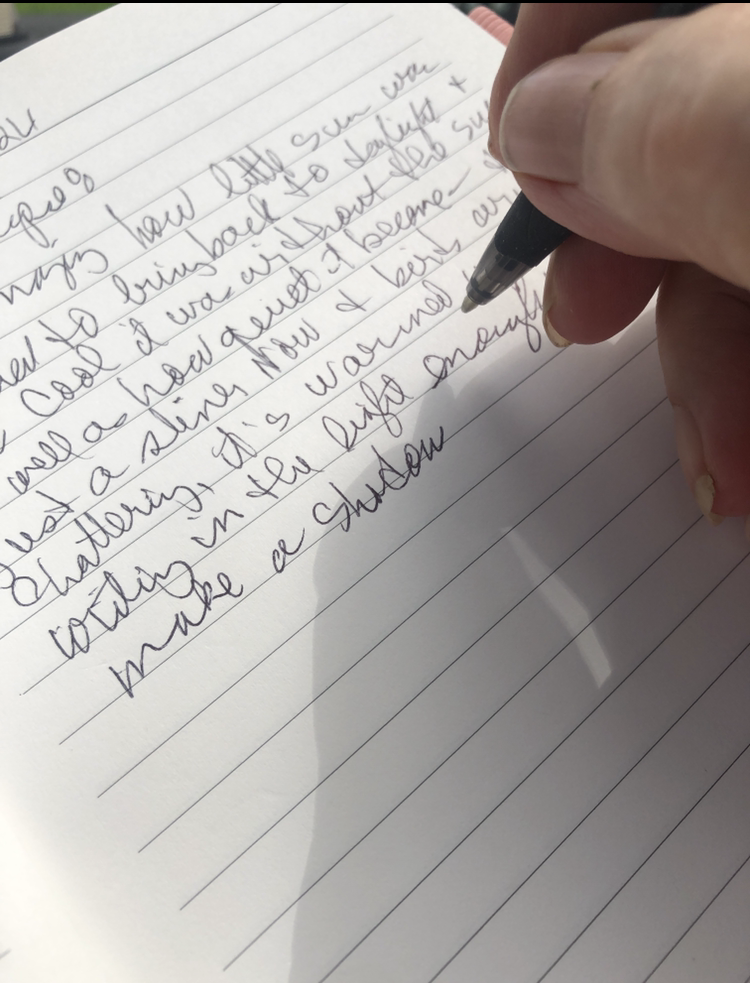 24
how little sun was
to bring back to daylight +
cool it was without the su
well as how quiet it became
just a sliver. Now + birds are
chattering, it's warmed
writing in the light enough
make a shadow